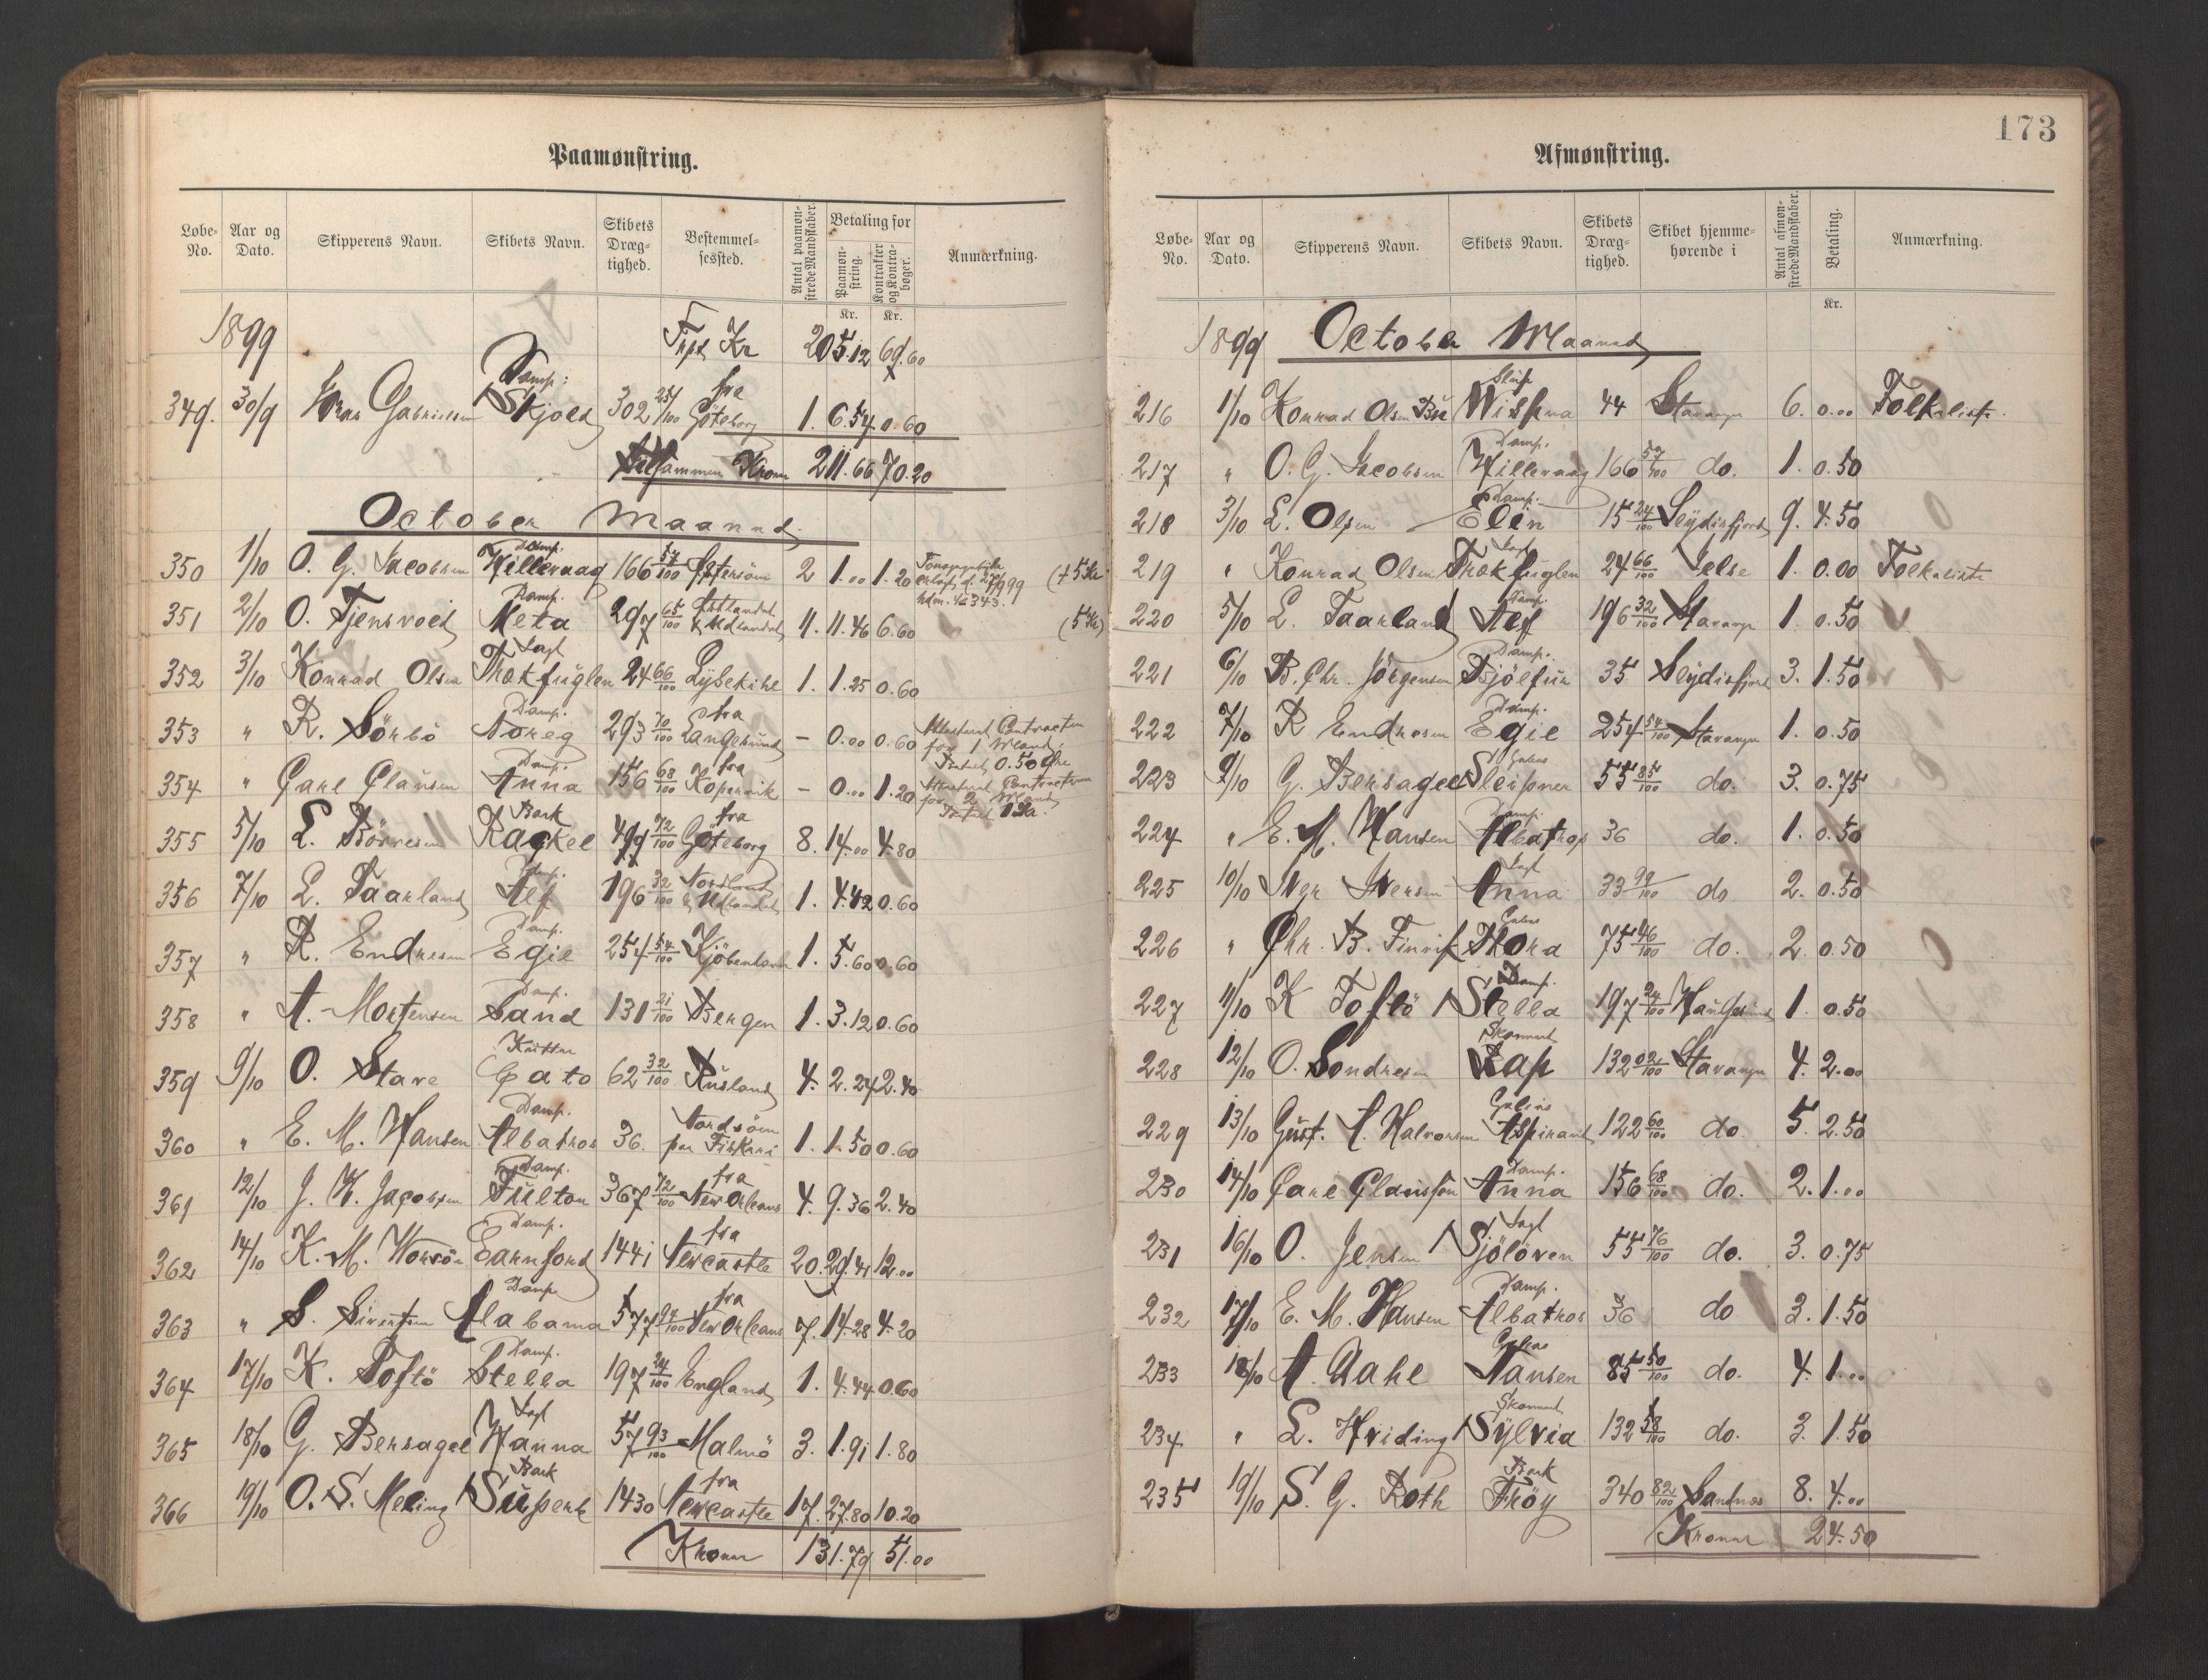 Paamønstring.
Løbe-No. | Aar og Dato. | Skipperens Navn. | Skibets Navn. | Skibets Dræg-tighed. | Bestemmel-sessted. | Antal paamøn-strede Mandskaber. | Betaling for Paamøn-string. Kr. | Kontrakter og Kontra-bøger. Kr. | Anmærkning.
1899 Kr 205.12 69.60
349. 30/9 Gabrielsen Damp: Skjold 302 25/100 fra Göteborg 1. 6.54 0.60
Tilsammen Kroner 211.66 70.20
October Maaned
350 1/10 O. G. Jacobsen Damp. Hilleraag 166 57/100 Østersöen 2 1.00 1.20
351 2/10 O. Tjensvold Damp. Meta 297 65/100 Udlandet 11. 11.46 6.60 (5 Kr)
352 3/10 Konrad Olsen Jagt Trækfuglen 24 66/100 Lysekihl 1. 1.25 0.60
353 " R. Sörbö Damp. Noreg 293 70/100 fra Langesund – 0.00 0.60 Attesteret Contracten for 1 Mand, 0.50 Øre
354 " Carl Clausen Damp. Anna 156 68/100 fra Kopervik – 0.00 1.20 Attesteret Contracten for 2 Mand
355 5/10 L. Börresen Bark Rackel 499 72/100 fra Göteborg 8. 14.00 4.80
356 7/10 L. Taarland Damp. Alf 196 32/100 Nordland & Udlandet 1. 4.42 0.60
357 " R. Endresen Damp. Egil 254 54/100 Kjöbenhavn 1. 5.60 0.60
358 " A. Mortensen Damp. Sand 131 21/100 Bergen 1. 3.12 0.60
359 9/10 O. Stave Kutter Cato 62 32/100 Rusland 4. 2.24 2.40
360 " E. M. Hansen Damp. Albatros 36. Nordsöen paa Fiskeri 1. 1.50 0.60
361 12/10 J. K. Jacobsen Damp. Fulton 367 72/100 fra New Orleans 4. 9.36 2.40
362 14/10 K. M. Worsöe Damp. Earnford 1441 fra Newcastle 20. 29.41 12.00
363 " S. Sivertsen Damp Alabama 577 fra New Orleans 7. 14.28 4.20
364 17/10 K. Toftö Damp. Stella 197 24/100 England 1. 4.44 0.60
365 18/10 G. Bersagel Jagt Hanna 57 93/100 Malmö 3. 1.91 1.80
366 19/10 O. S. Meling Bark Superb 1430 fra Newcastle 17. 27.80 10.20
Kroner 131.79 51.00
173
Afmønstring.
Løbe-No. | Aar og Dato. | Skipperens Navn. | Skibets Navn. | Skibets Dræg-tighed. | Skibet hjemme-hørende i | Antal afmøn-strede Mandskaber. | Betaling. Kr. | Anmærkning.
1899 October Maaned
216 1/10 Konrad Olsen Bu Slup 44 Stavanger 6. 0.00 Folkeliste.
217 " O. G. Jacobsen Damp. Hilleraag 166 57/100 do. 1. 0.50
218 3/10 L. Olsen Damp. Elin 15 24/100 Seydisfjord 9. 4.50
219 " Konrad Olsen Jagt Trækfuglen 24 66/100 Jelse 1. 0.00 Folkeliste
220 5/10 L. Taarland Damp. Alf 196 32/100 Stavanger 1. 0.50
221 6/10 B. Chr. Jörgensen Damp. Bjólfur 35 Seydisfjord 3. 1.50
222 7/10 R Endresen Damp. Egil 254 54/100 Stavanger 1. 0.50
223 9/10 G. Bersagel Galeas Sleipner 55 85/100 do. 3. 0.75
224 " E. M. Hansen Damp. Albatros 36 do. 1. 0.50
225 10/10 Iver Iversen Jagt Anna 33 99/100 do 2. 0.50
226 " Chr. B. Galeas Thora 75 46/100 do. 2. 0.50
227 11/10 K Toftö Damp. Stella 197 24/100 Haugesund 1. 0.50
228 12/10 O. Sondresen Skonnert Rap 132 02/100 Stavanger 4. 2.00
229 13/10 Gust. A. Halvorsen Galeas Aspirant 122 60/100 do. 5. 2.50
230 14/10 Carl Clausson Damp. Anna 156 68/100 do. 2. 1.00
231 16/10 O. Jensen Jagt Sjölöven 55 76/100 do. 3. 0.75
232 17/10 E. M. Hansen Damp. Albatros 36 do 3. 1.50
233 18/10 A. Dahl Galeas Nansen 85 50/100 do. 4. 1.00
234 " L. Hviding Skonnert Sylvia 132 58/100 do. 3. 1.50
235 19/10 S. G. Roth Bark Fröy 340 82/100 Sandnæs 8. 4.00
Kroner 24.50